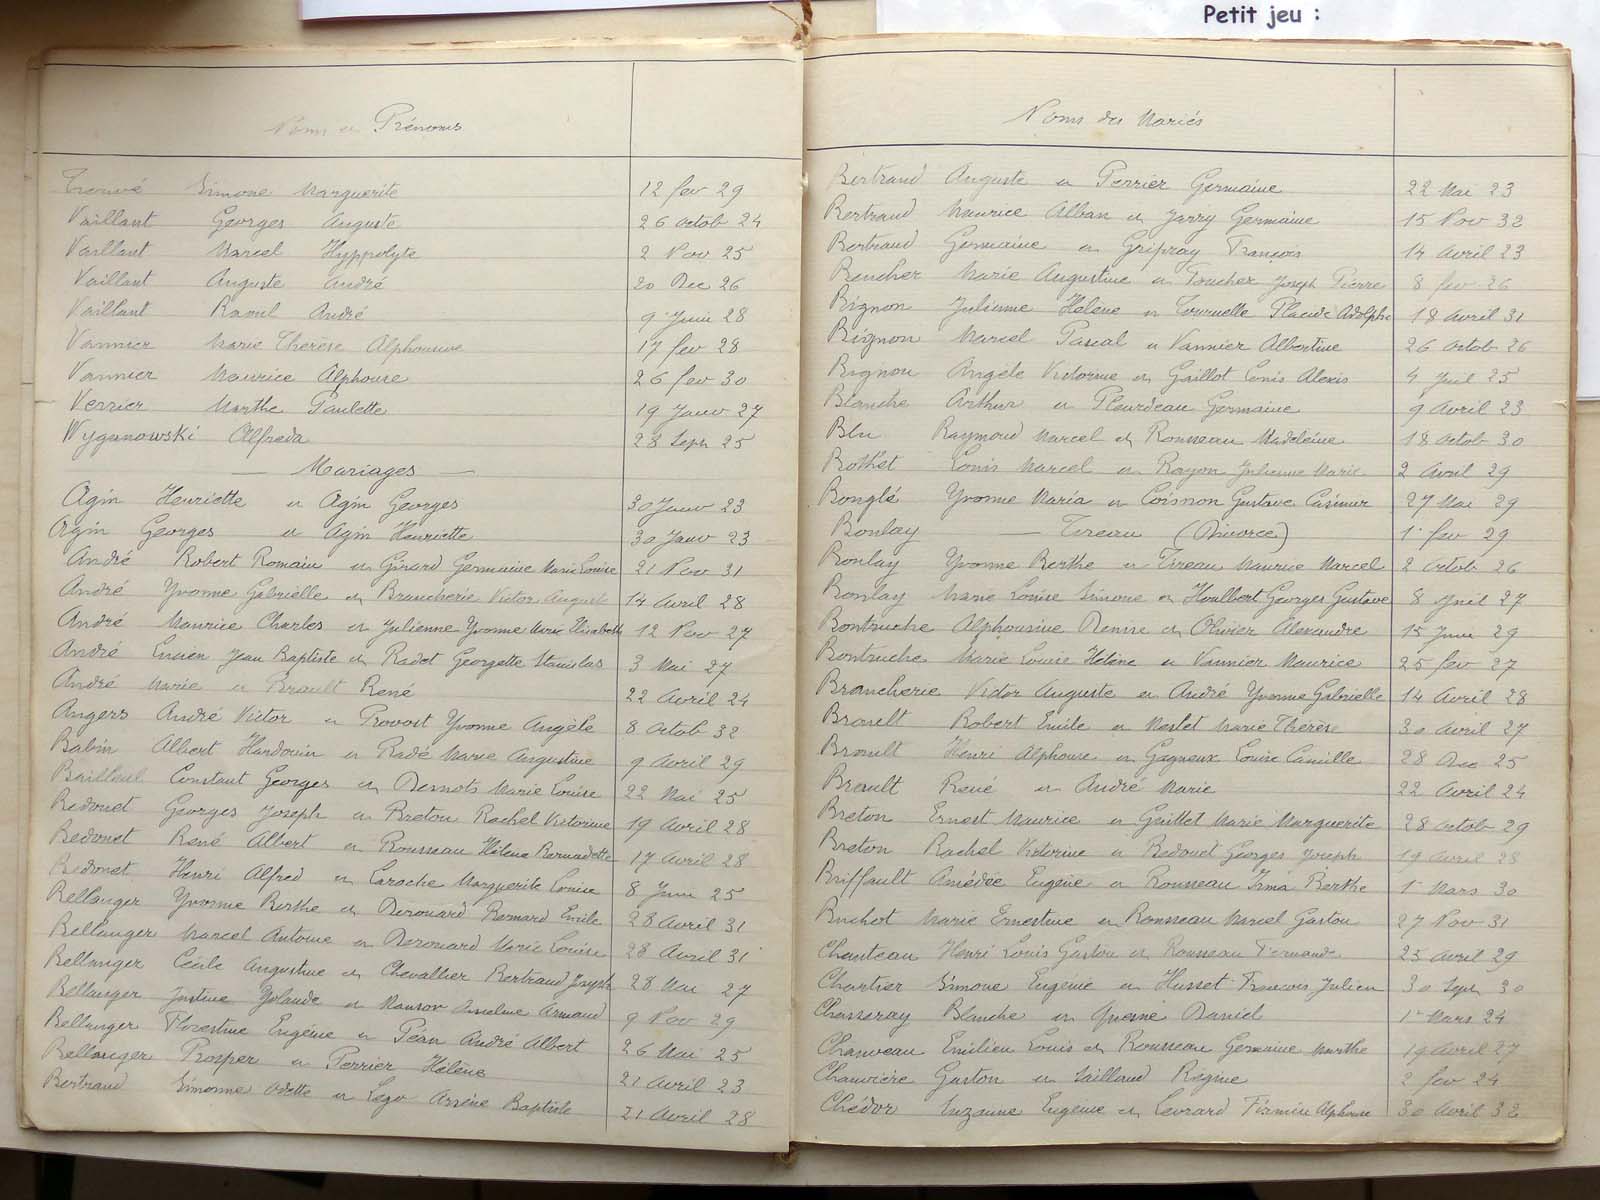 Petit jeu :
Noms et Prénoms
Trouvé Simone Marguerite 12 fev 29
Vaillant Georges Auguste 26 octob 24
Vaillant Marcel Hyppolyte 2 Nov 25
Vaillant Auguste André 20 Dec 26
Vaillant Raoul André 9 Juin 28
Vannier Marie Thérèse Alphonsine 17 fev 28
Vannier Maurice Alphonse 26 fev 30
Verrier Marthe Paulette 19 Janv 27
Wygunowski Alfreda 28 Sept 25
— Mariages —
Agin Henriette et Agin Georges 30 Janv 23
Agin Georges et Agin Henriette 30 Janv 23
André Robert Romain et Girard Germaine Marie Louise 21 Nov 31
André Yvonne Gabrielle et Brancherie Victor Auguste 14 Avril 28
André Maurice Charles et Julienne Yvonne Marie Elisabeth 12 Nov 27
André Lucien Jean Baptiste et Radet Georgette Stanislas 3 Mai 27
André Marie et Brault René 22 Avril 24
Angers André Victor et Provost Yvonne Angèle 8 octob 32
Babin Albert Hardouin et Radé Marie Augustine 9 Avril 29
Bailleul Constant Georges et Desnots Marie Louise 22 Mai 25
Bedouet Georges Joseph et Breton Rachel Victorine 19 Avril 28
Bedouet René Albert et Rousseau Hélène Bernadette 17 Avril 28
Bedouet Henri Alfred et Laroche Marguerite Louise 8 Juin 25
Bellanger Yvonne Berthe et Derouard Bernard Emile 28 Avril 31
Bellanger Marcel Antoine et Derouard Marie Louise 28 Avril 31
Bellanger Cécile Augustine et Chevallier Bertrand Joseph 28 Mai 27
Bellanger Justine Yolande et Manson Anselme Armand 9 Nov 29
Bellanger Florestine Eugénie et Péan André Albert 26 Mai 25
Bellanger Prosper et Perrier Hélène 21 Avril 23
Bertrand Simonne Odette et Lego Arsène Baptiste 21 Avril 28
Noms des Mariés
Bertrand Auguste et Perrier Germaine 22 Mai 23
Bertrand Maurice Alban et Jarry Germaine 15 Nov 32
Bertrand Germaine et Grifray François 14 Avril 23
Beucher Marie Augustine et Foucher Joseph Pierre 8 fev 26
Bignon Julienne Hélène et Tournelle Placide Adolphe 18 Avril 31
Bignon Marcel Pascal et Vannier Albertine 26 octob 26
Bignon Angèle Victorine et Gaillot Louis Alexis 4 Juil 25
Blanche Arthur et Pleurdeau Germaine 9 Avril 23
Blu Raymond Marcel et Rousseau Madeleine 18 octob 30
Bothet Louis Marcel et Rayon Julienne Marie 2 Avril 29
Bouglé Yvonne Maria et Coisnon Gustave Casimir 27 Mai 29
Boulay — Tireau (Divorce) 1er fev 29
Boulay Yvonne Berthe et Tireau Maurice Marcel 2 octob 26
Boulay Marie Louise Simone et Houlbert Georges Gustave 8 Juil 27
Boutruche Alphonsine Denise et Olivier Alexandre 15 Juin 29
Boutruche Marie Louise Hélène et Vannier Maurice 25 fev 27
Brancherie Victor Auguste et André Yvonne Gabrielle 14 Avril 28
Brault Robert Emile et Meslet Marie Thérèse 30 Avril 27
Brault Henri Alphonse et Gagneux Louise Camille 28 Dec 25
Brault René et André Marie 22 Avril 24
Breton Ernest Maurice et Guittet Marie Marguerite 28 octob 29
Breton Rachel Victorine et Bedouet Georges Joseph 19 Avril 28
Briffault Amédée Eugène et Rousseau Irma Berthe 1er Mars 30
Buchot Marie Ernestine et Rousseau Marcel Gaston 27 Nov 31
Chanteau Henri Louis Gaston et Rousseau Fernande 25 Avril 29
Chartier Simone Eugénie et Husset François Julien 30 Sept 30
Chasseray Blanche et Daniel 1er Mars 24
Chauveau Emilien Louis et Rousseau Germaine Marthe 19 Avril 27
Chauvière Gaston et Saillaud Régine 2 fev 24
Chédor Suzanne Eugénie et Levrard Firmin Alphonse 30 Avril 32